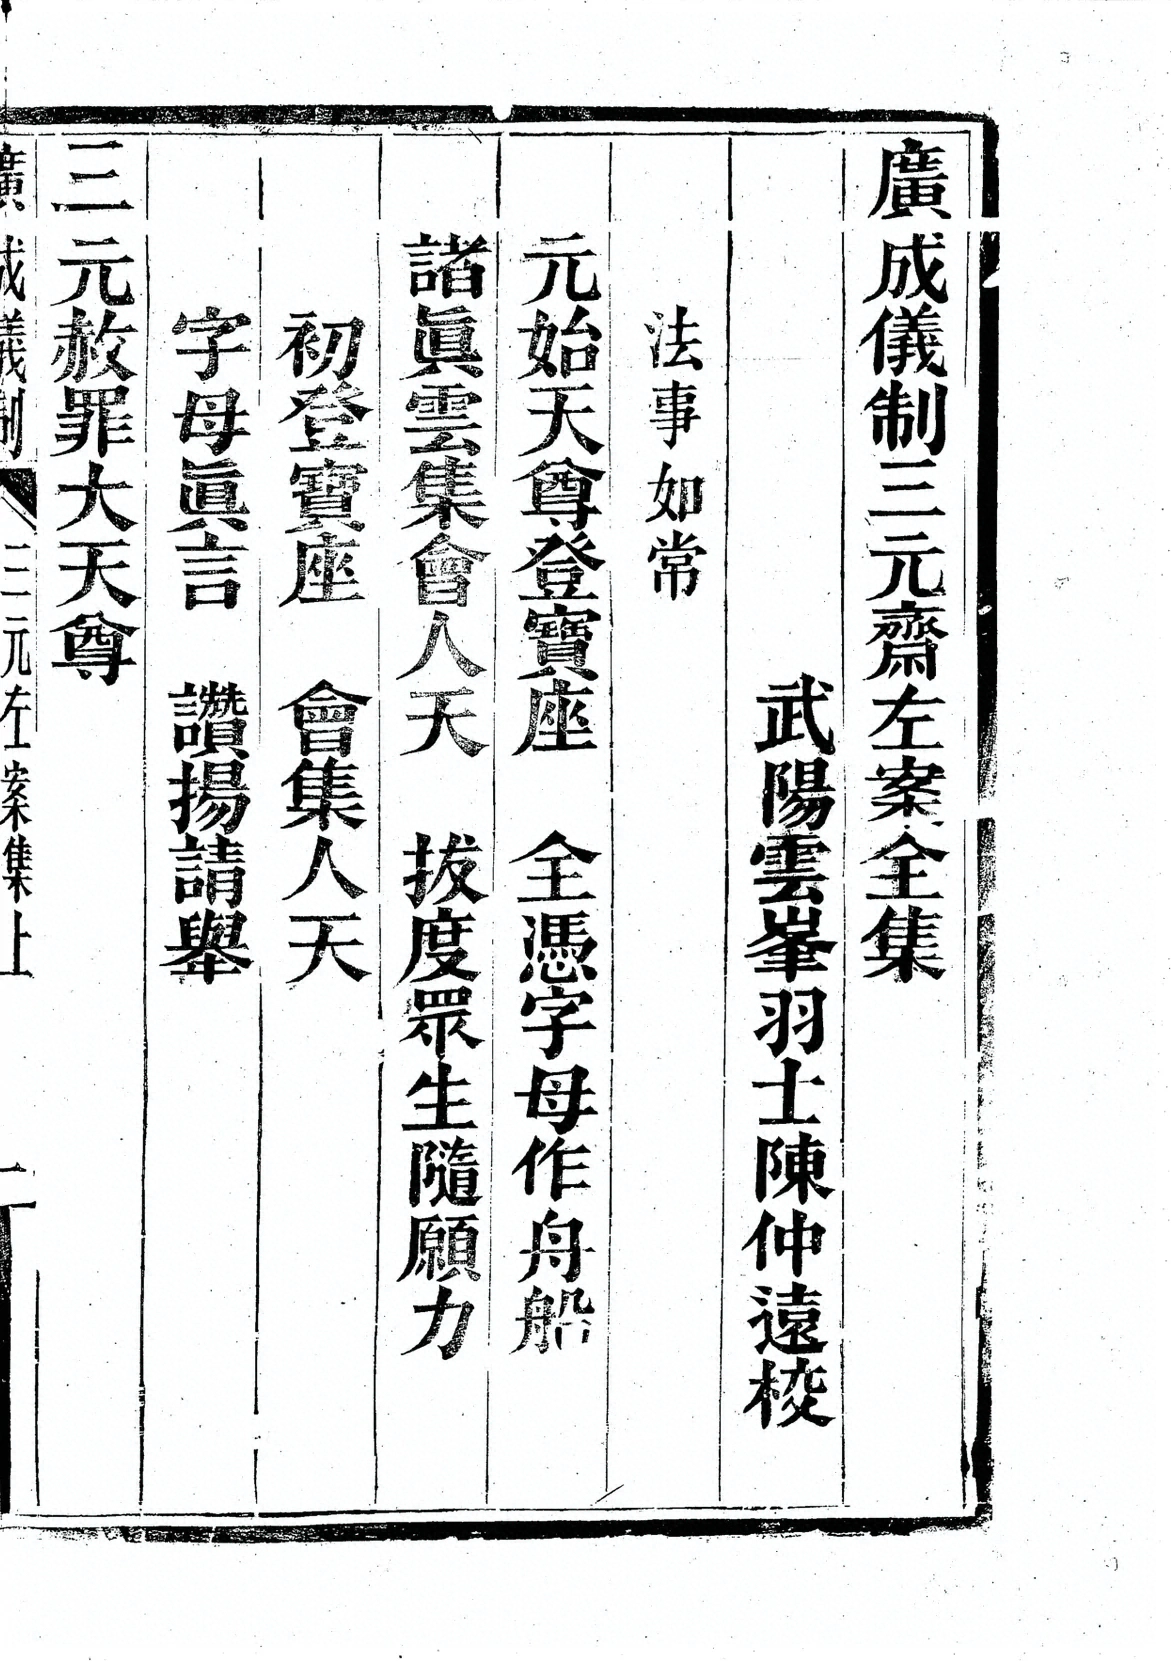 廣成儀制三元齋左案全集
武陽雲峯羽士陳仲遠校
法事如常
元始天尊登寶座　全憑字母作舟船
諸眞雲集會人天　拔度眾生隨願力
初登寶座　會集人天
字母眞言　讚揚請舉
三元赦罪大天尊
廣成儀制　三元左案集上　一